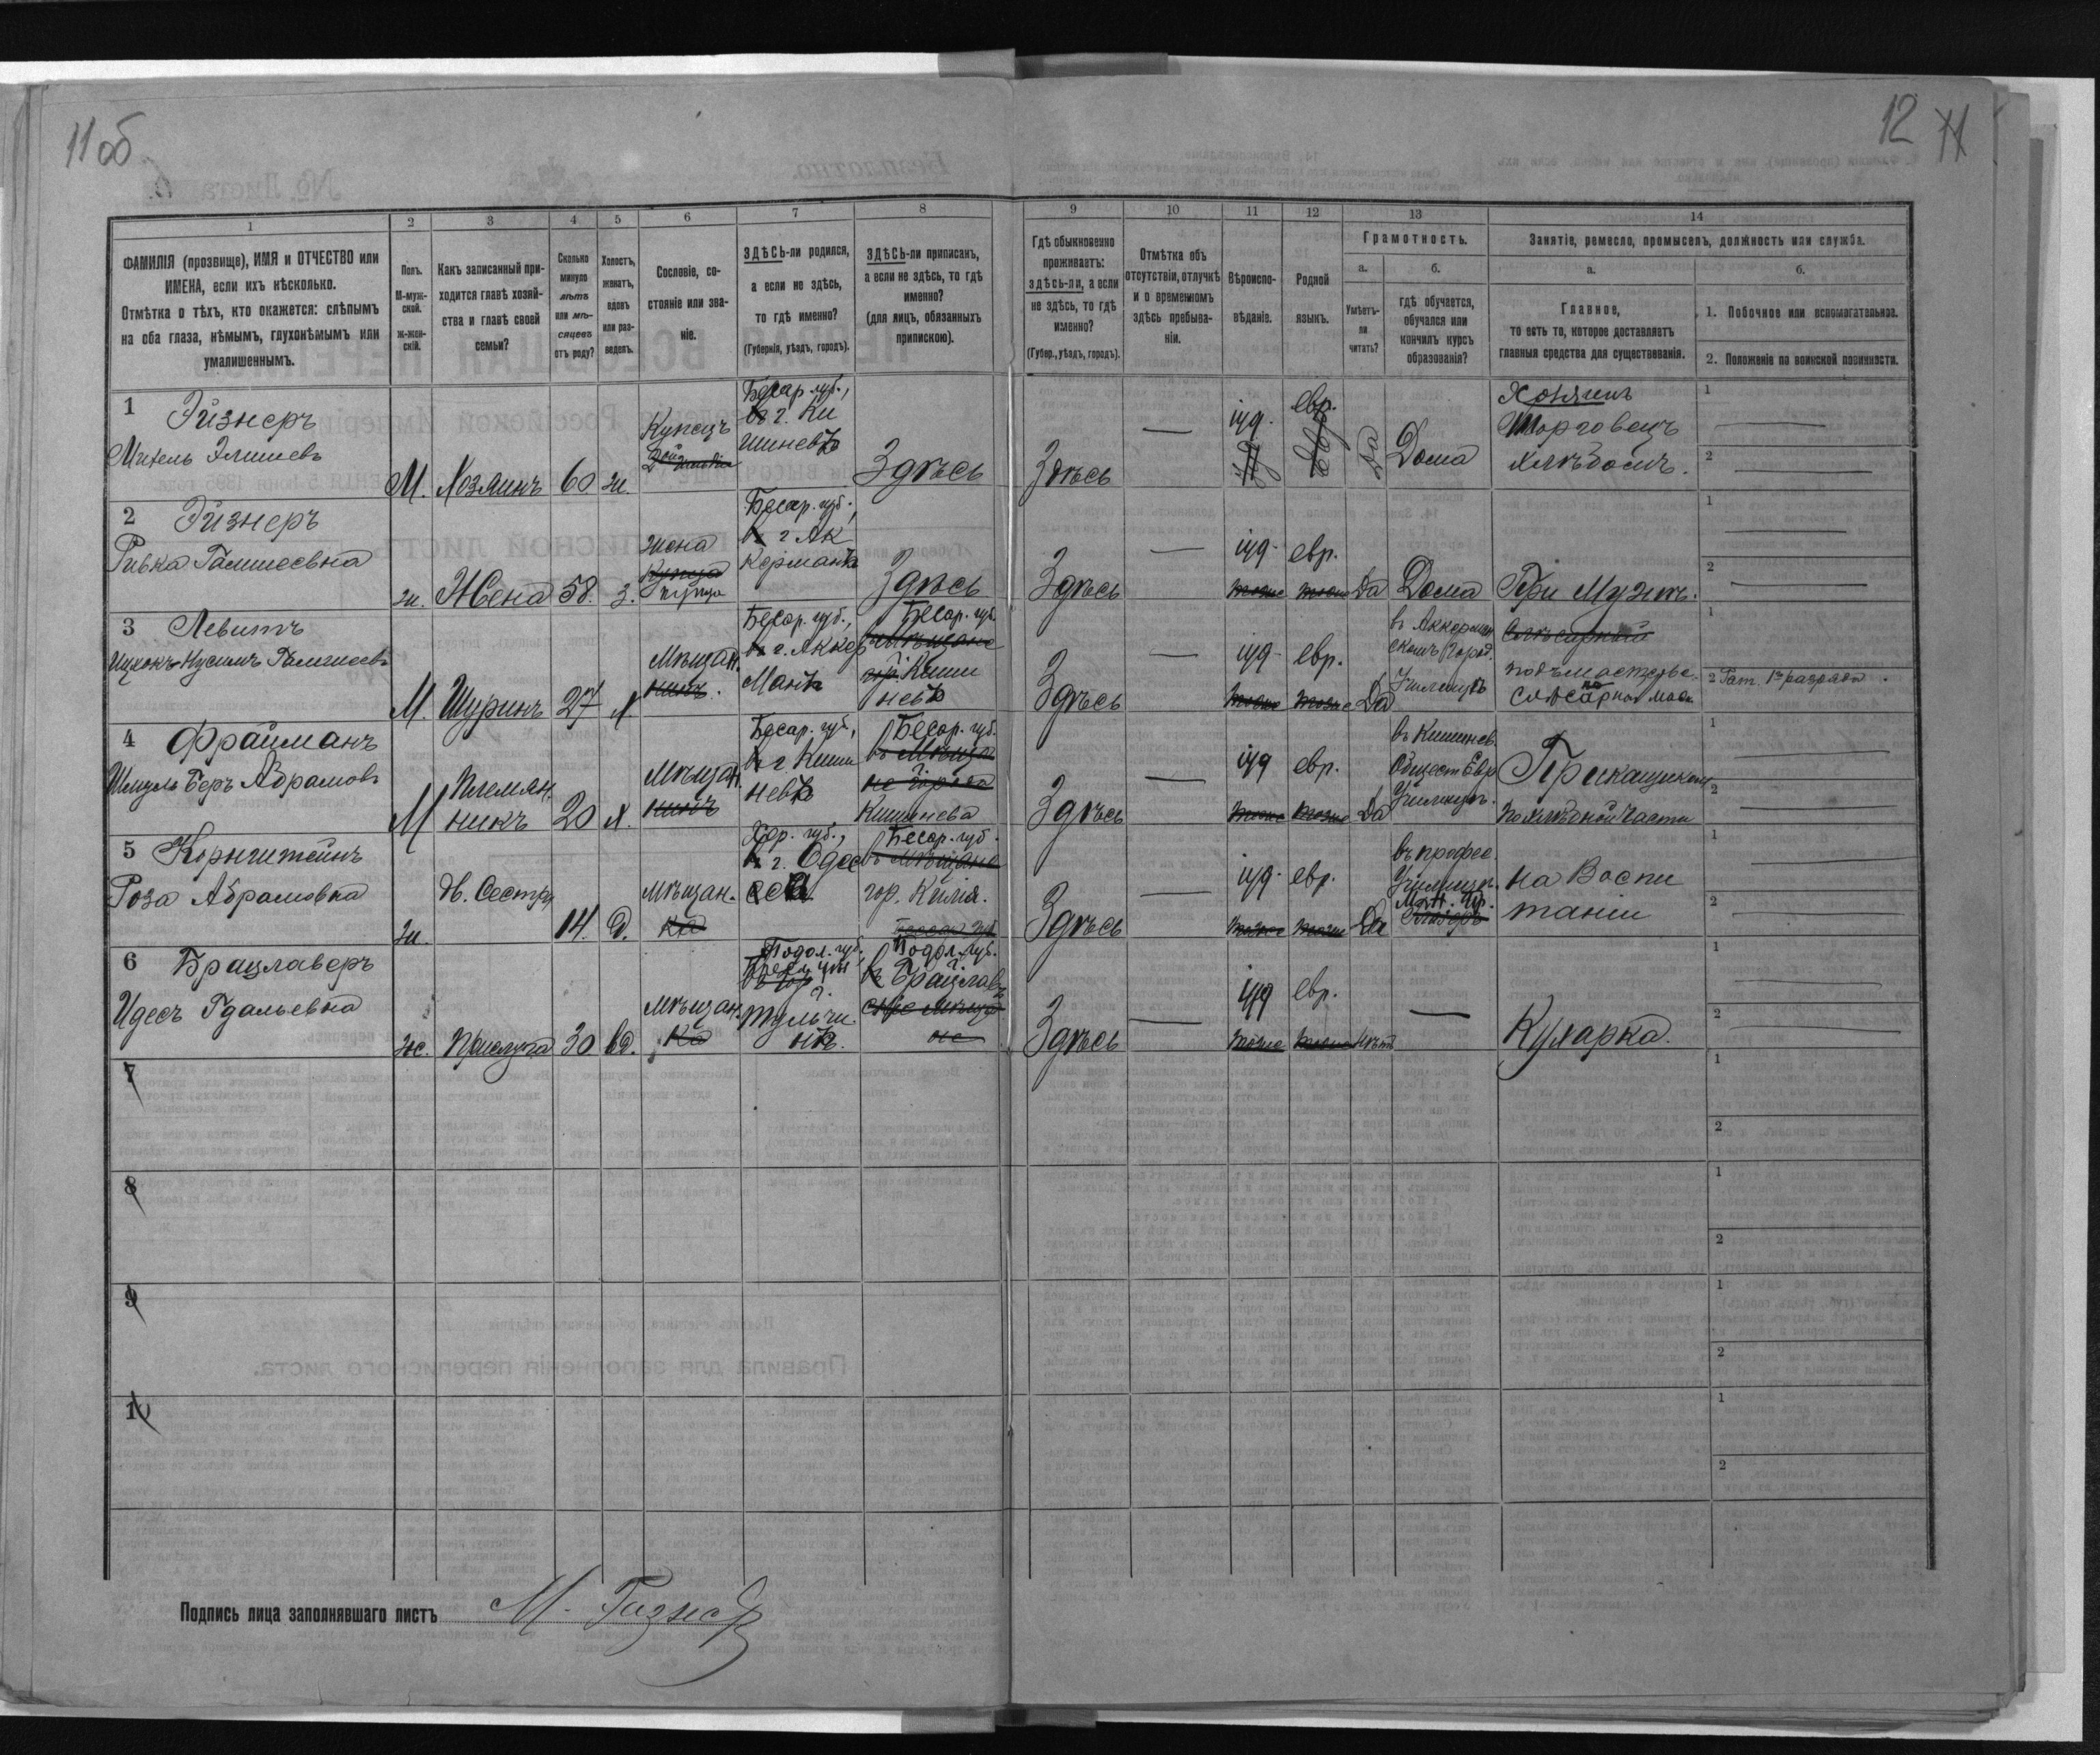 11 об
12 11
1
2
3
4
5
6
7
8
9
10
11
12
13
14
ФАМИЛІЯ (прозвище), ИМЯ и ОТЧЕСТВО или
ИМЕНА, если ихъ нѣсколько.
Отмѣтка о тѣхъ, кто окажется: слѣпымъ
на оба глаза, нѣмымъ, глухонѣмымъ или
умалишеннымъ.
Полъ.
М-муж-
ской.
ж-жен-
скій.
Какъ записанный при-
ходится главѣ хозяй-
ства и главѣ своей
семьи?
Сколько
минуло
лѣтъ
или мѣ-
сяцевъ
отъ роду?
Холостъ,
женатъ,
вдовъ
или раз-
веденъ.
Сословіе, со-
стояніе или зва-
ніе.
ЗДѢСЬ-ли родился,
а если не здѣсь,
то гдѣ именно?
(Губернія, уѣздъ, городъ).
ЗДѢСЬ-ли приписанъ,
а если не здѣсь, то гдѣ
именно?
(для лицъ, обязанныхъ
припискою).
Гдѣ обыкновенно
проживаетъ:
здѣсь-ли, а если
не здѣсь, то гдѣ
именно?
(Губер., уѣздъ, городъ).
Отмѣтка объ
отсутствіи, отлучкѣ
и о временномъ
здѣсь пребыва-
ніи.
Вѣроиспо-
вѣданіе.
Родной
языкъ.
Грамотность.
а.
Умѣетъ-
ли
читать?
б.
гдѣ обучается,
обучался или
кончилъ курсъ
образованія?
Занятіе, ремесло, промыселъ, должность или служба.
а.
Главное,
то есть то, которое доставляетъ
главныя средства для существованія.
б.
1. Побочное или вспомогательное.
2. Положеніе по воинской повинности.
1 Эйзнеръ
М. Хозяинъ 60 ж.
Купецъ
2ой
Бесар. губ.,
въ г. Ки
шиневѣ
Здѣсь
Здѣсь
іуд.
евр.
Да
Дома
Хозяинъ
Торговецъ
хлѣбомъ.
1
2
2 Эйзнеръ
Ривка
ж. Жена 58. З.
жена
купца
Бесар. губ.,
въ г. Ак
керманѣ
Здѣсь
Здѣсь
іуд.
евр.
тоже тоже Да Дома
При Мужѣ.
1
2
3 Левитъ
М. Шуринъ 27 х.
Мѣщан.
нинъ.
Бесар. губ.,
въ г. Аккер
манѣ
Бесар. губ.
гор. Киши
невѣ
Здѣсь
іуд.
евр.
тоже тоже Да
въ Аккерман
скомъ Город.
Училищѣ
подъмастерье
по
1
2 1го разряда
4 Фрайманъ
Шмуль Беръ Абрамовъ
М Племян.
никъ 20 х.
Мѣщан.
нинъ
Бесар. губ.,
въ г Киши
невѣ
Бесар. губ.
въ Мѣща
не города
г.
Кишинева
Здѣсь
іуд
евр.
тоже тоже Да
въ Кишинев.
Общест Евр
Училищѣ.
Прикащикомъ
по хлѣбной части
1
2
5 Корнштейнъ
Роза Абрамовна
ж. дв. Сестра 14. д.
Мѣщан.
ка
Хер. губ.,
въ г. Одес
са
Бесар. губ.
въ мѣщане
гор. Килія.
Здѣсь
іуд.
евр.
тоже тоже Да
въ профес.
Училищѣ
на Воспи
таніи
1
2
6 Брацлаверъ
Идесъ Гдальевна
ж. Прислуга 30 вд.
Мѣщан.
ка
Подол. губ.,
г.
Тульчи
нѣ.
Подол. губ.
г.
въ Брацлавѣ
Здѣсь
іуд
евр.
тоже тоже Нѣтъ
Кухарка.
1
2
7
1
2
8
1
2
9
1
2
10
1
2
Подпись лица заполнявшаго листъ